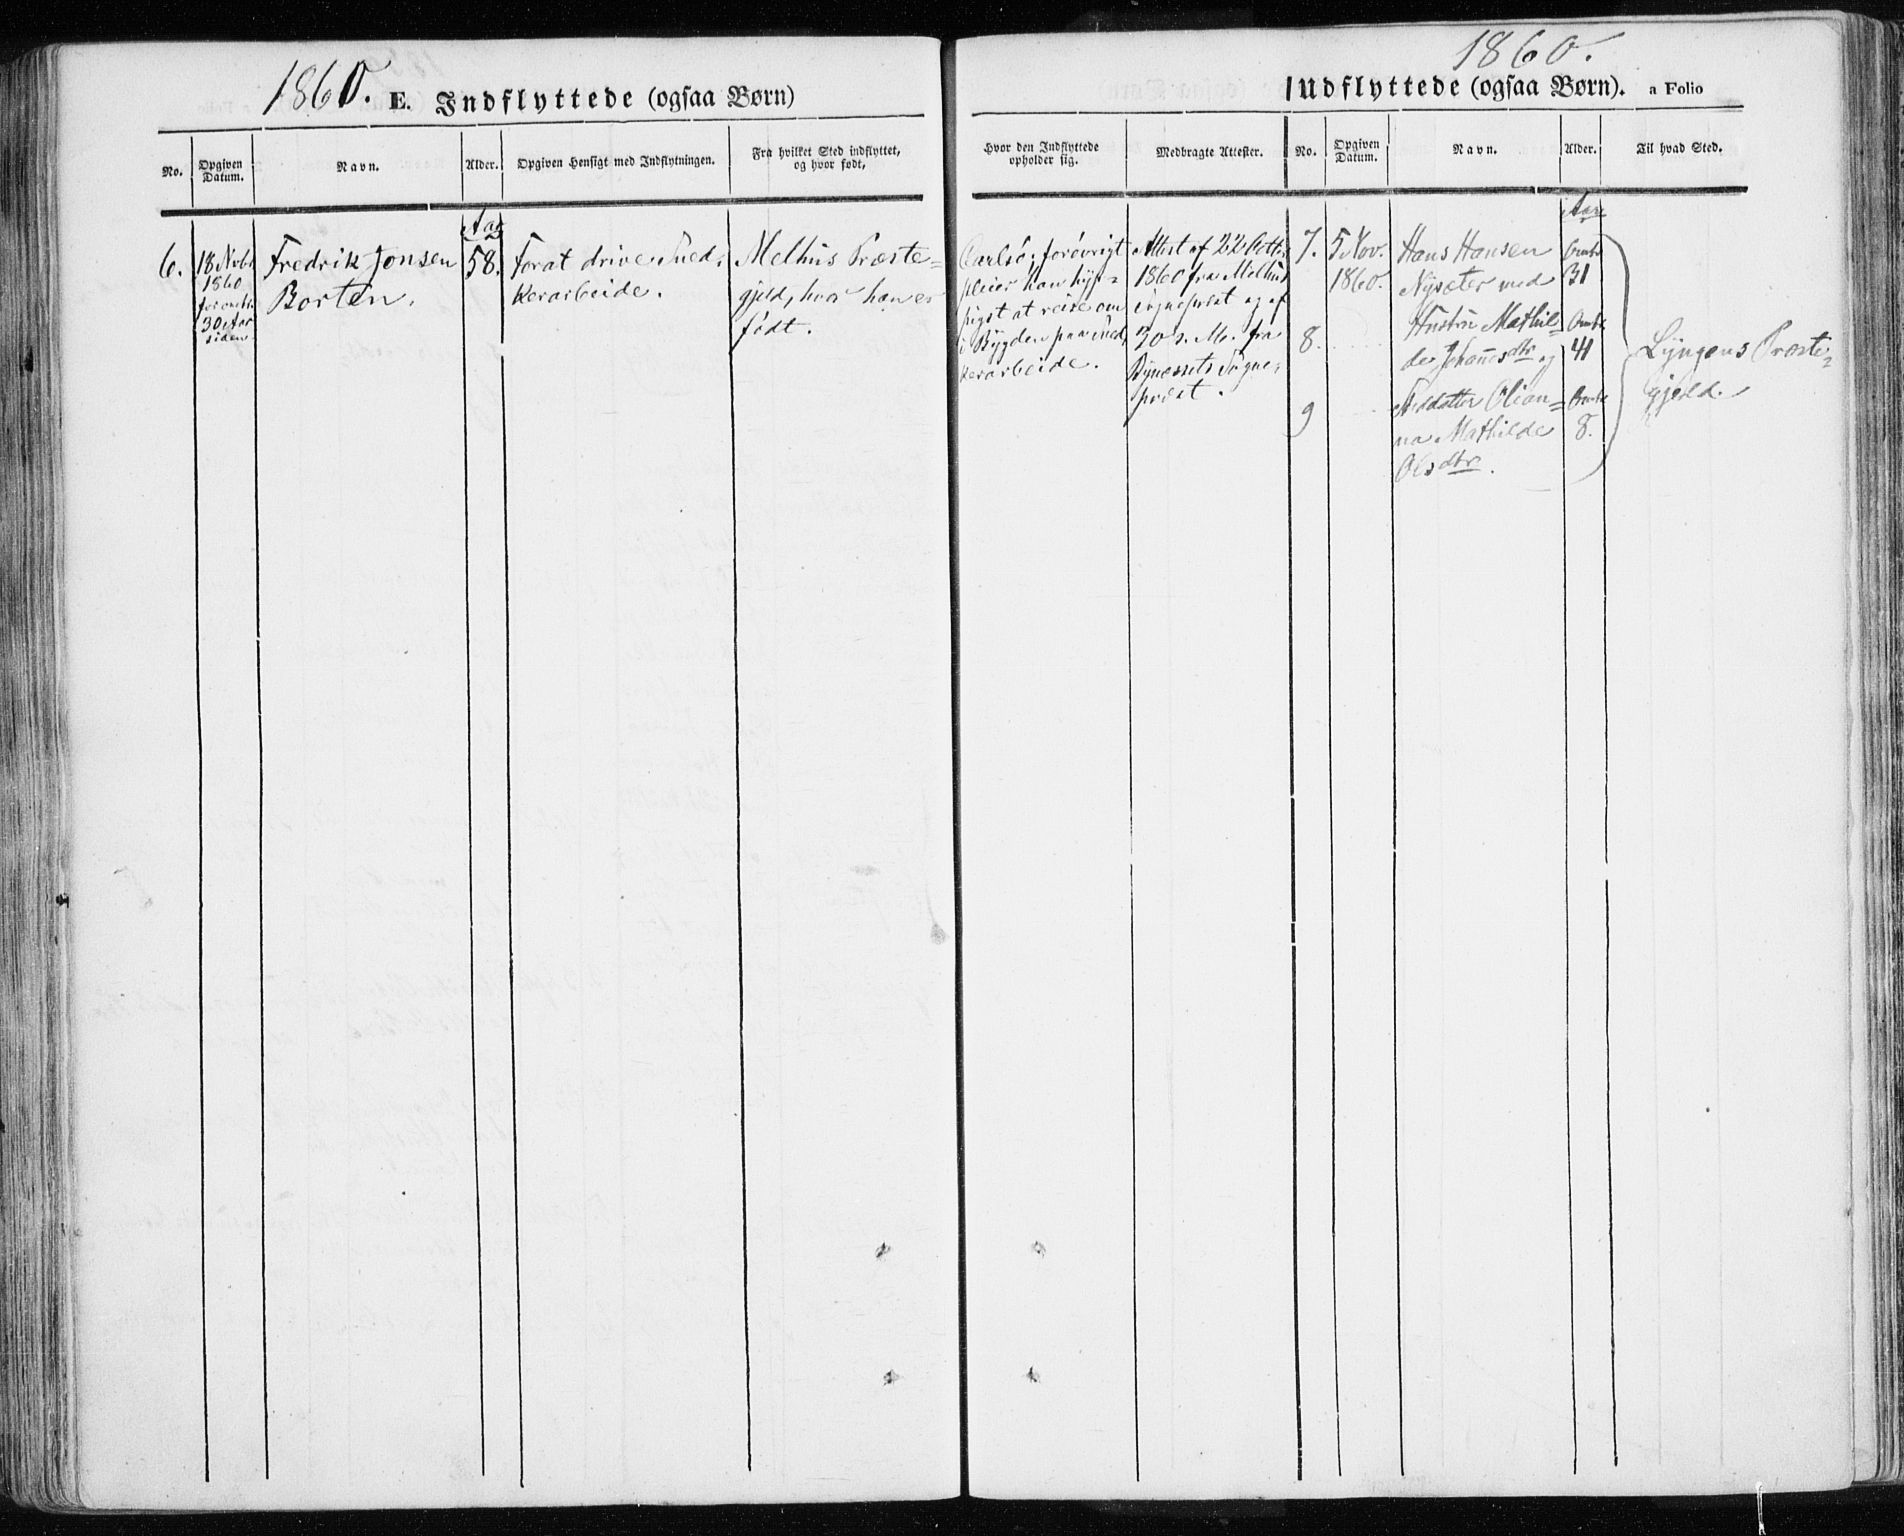 1860.
E. Indflyttede (ogsaa Børn)
No.
Opgiven Datum.
Navn.
Alder.
Opgiven Hensigt med Indflytningen.
Fra hvilket Sted indflyttet,
og hvor født,
Aar
6.
18 Novbr
1860
for omtr.
30 Aar
siden.
Fredrik Jonsen
Borten.
58.
For at drive Sned-
kerarbeide.
Melhus Præste-
gjeld, hvor han er
født.
1860.
Udflyttede (ogsaa Børn). a Folio
Hvor den Indflyttede
opholder sig.
Medbragte Attester.
No.
Opgiven Datum.
Navn.
Alder.
Til hvad Sted.
Carlsö; forövrigt
pleier han hyp-
pigst at reise om
i Bygden paa Sned-
kerarbeide.
Attest af 22 Octbr
1860 fra Melhus
Sognepræst og af
30 s. M. fra
Bynessets Sogne-
præst.
Aar
7.
5 Nov.
1860.
Hans Hansen
Nysæter med
Omtr
31
8.
Hustru Mathil-
de Johannesdtr og
Omtr
41
9
Steddatter Olian-
na Mathilde
Olsdtr.
Omtr
8.
Lyngens Præste-
gjeld.